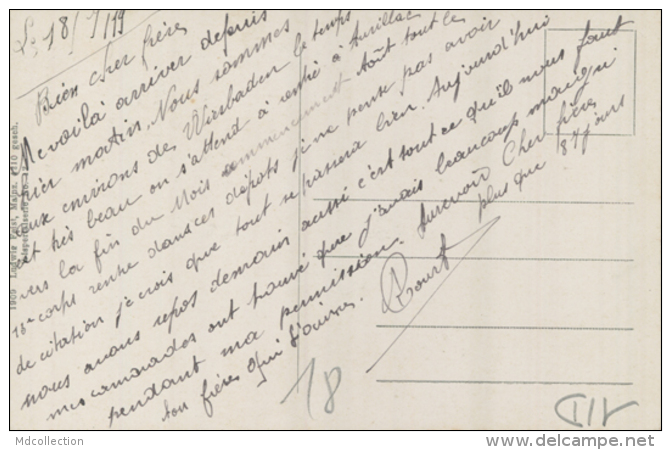 Le 18/7/19
Bien cher frère
Me voilà arriver depuis
hier matin. Nous sommes
aux environs de Wiesbaden le temps
est très beau on s'attend à rentré à Aurillac
vers la fin du Mois commencement Août tout le
16e corps rentre dans ces dépots je ne pense pas avoir
de citation je crois que tout se passera bien. Aujourd'hui
nous avons repos demain aussi c'est tout ce qu'il nous faut
mes camarades ont trouvé que j'avais beaucoup maigri
pendant ma permission. Aurevoir Cher frère
ton frère qui t'aime.
plus que
84 jours
18
VII
1909 Ludwig Feist, Mainz.
gesch.
Mdcollection
www.delcampe.net